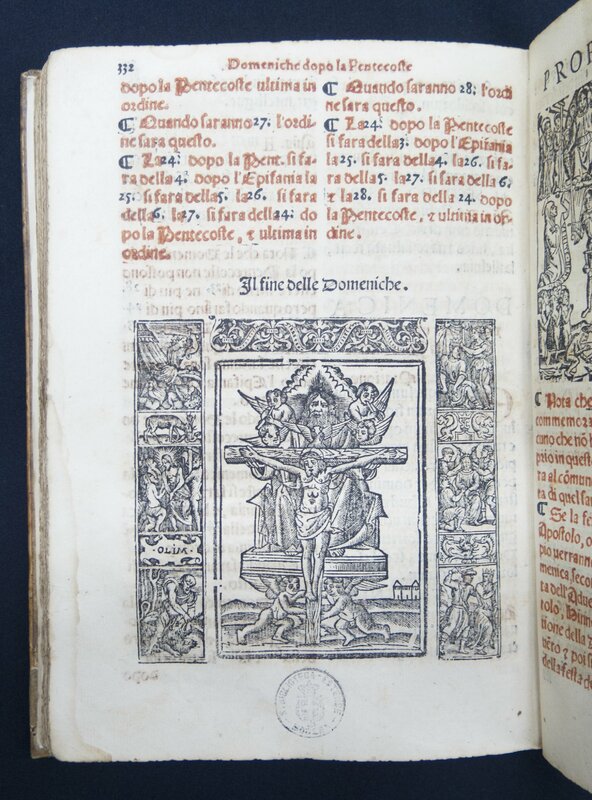 332 Domeniche dopo la Pentecoste
dopo la Pentecoste ultima in
ordine.
¶ Quando saranno 27. l'ordi
ne sara questo.
¶ La 24. dopo la Pent. si fa-
ra della 4. dopo l'Epifania la
25. si fara della 5. la 26. si fara
della 6. la 27. si fara della 24. do
po la Pentecoste, & ultima in
ordine.
¶ Quando saranno 28. l'ordi
ne sara questo.
¶ La 24. dopo la Pentecoste
si fara della 3. dopo l'Epifania
la 25. si fara della 4. la 26. si fa-
ra della 5. la 27. si fara della 6.
& la 28. si fara della 24. dopo
la Pentecoste, & ultima in or-
dine.
Il fine delle Domeniche.
OLIVA
PROP
¶ Nota che
commemora
cuno che nō h
prio in quest
ra al cōmun
ta di quel san
¶ Se la fe
Apostolo, o
pio verrann
menica seco
ta dell'Adue
tolo, Hinn
tione della
nero & poi s
della festa d